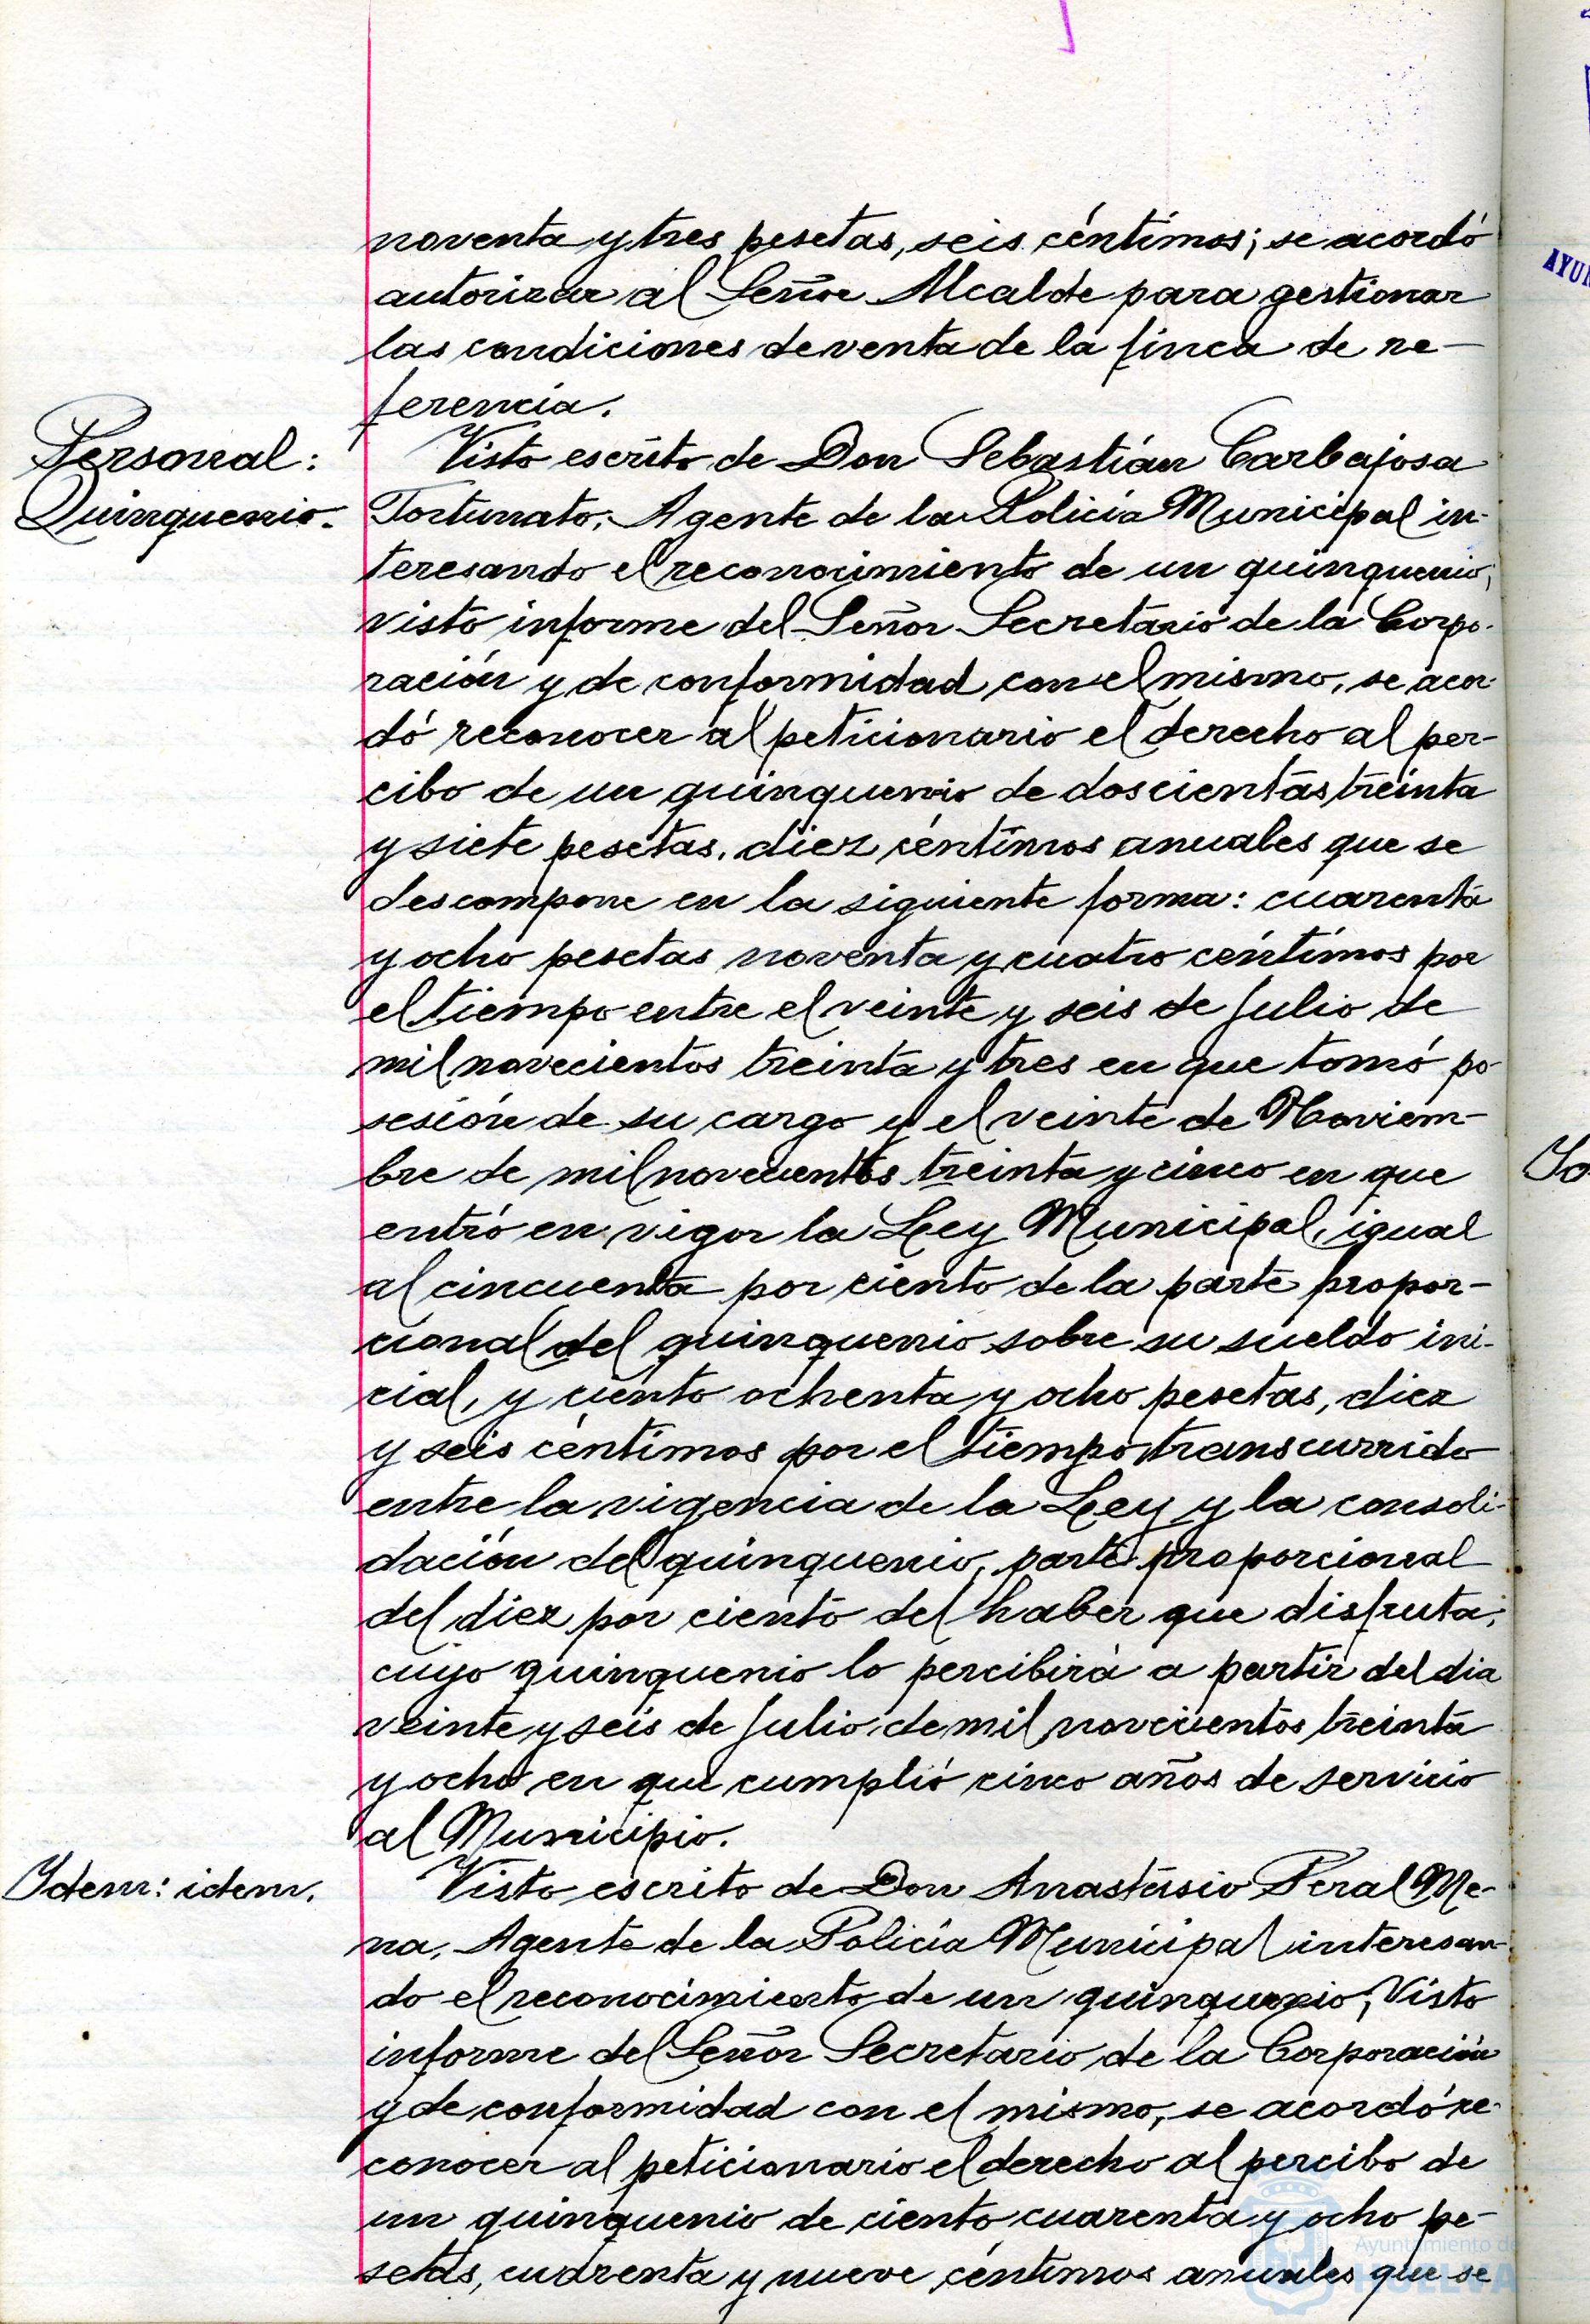 noventa y tres pesetas, seis céntimos; se acordó
autorizar al Señor Alcalde para gestionar
las condiciones de venta de la finca de re-
ferencia.
Personal:
Quinquenio.
Visto escrito de Don Sebastián Carbajosa
Fortunato, Agente de la Policía Municipal in-
teresando el reconocimiento de un quinquenio;
visto informe del Señor Secretario de la Corpo-
ración y de conformidad con el mismo, se acor-
dó reconocer al peticionario el derecho al per-
cibo de un quinquenio de doscientas treinta
y siete pesetas, diez céntimos anuales que se
descompone en la siguiente forma: cuarenta
y ocho pesetas noventa y cuatro céntimos por
el tiempo entre el veinte y seis de Julio de
mil novecientos treinta y tres en que tomó po-
sesión de su cargo y el veinte de Noviem-
bre de mil novecientos treinta y cinco en que
entró en vigor la Ley Municipal, igual
al cincuenta por ciento de la parte propor-
cional del quinquenio sobre su sueldo ini-
cial, y ciento ochenta y ocho pesetas, diez
y seis céntimos por el tiempo transcurrido
entre la vigencia de la Ley y la consoli-
dación del quinquenio, parte proporcional
del diez por ciento del haber que disfruta;
cuyo quinquenio lo percibirá a partir del dia
veinte y seis de Julio de mil novecientos treinta
y ocho en que cumplió cinco años de servicio
al Municipio.
Idem: idem.
Visto escrito de Don Anastasio Peral Me-
na, Agente de la Policía Municipal interesan-
do el reconocimiento de un quinquenio; Visto
informe del Señor Secretario de la Corporación
y de conformidad con el mismo, se acordó re-
conocer al peticionario el derecho al percibo de
un quinquenio de ciento cuarenta y ocho pe-
setas, cuarenta y nueve céntimos anuales que se
AYUN
Yo
Ayuntamiento de
HUELVA